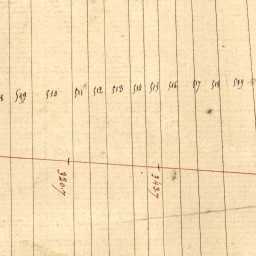 509 510 511 512 513 514 515 516 517 518 519
3207
3437